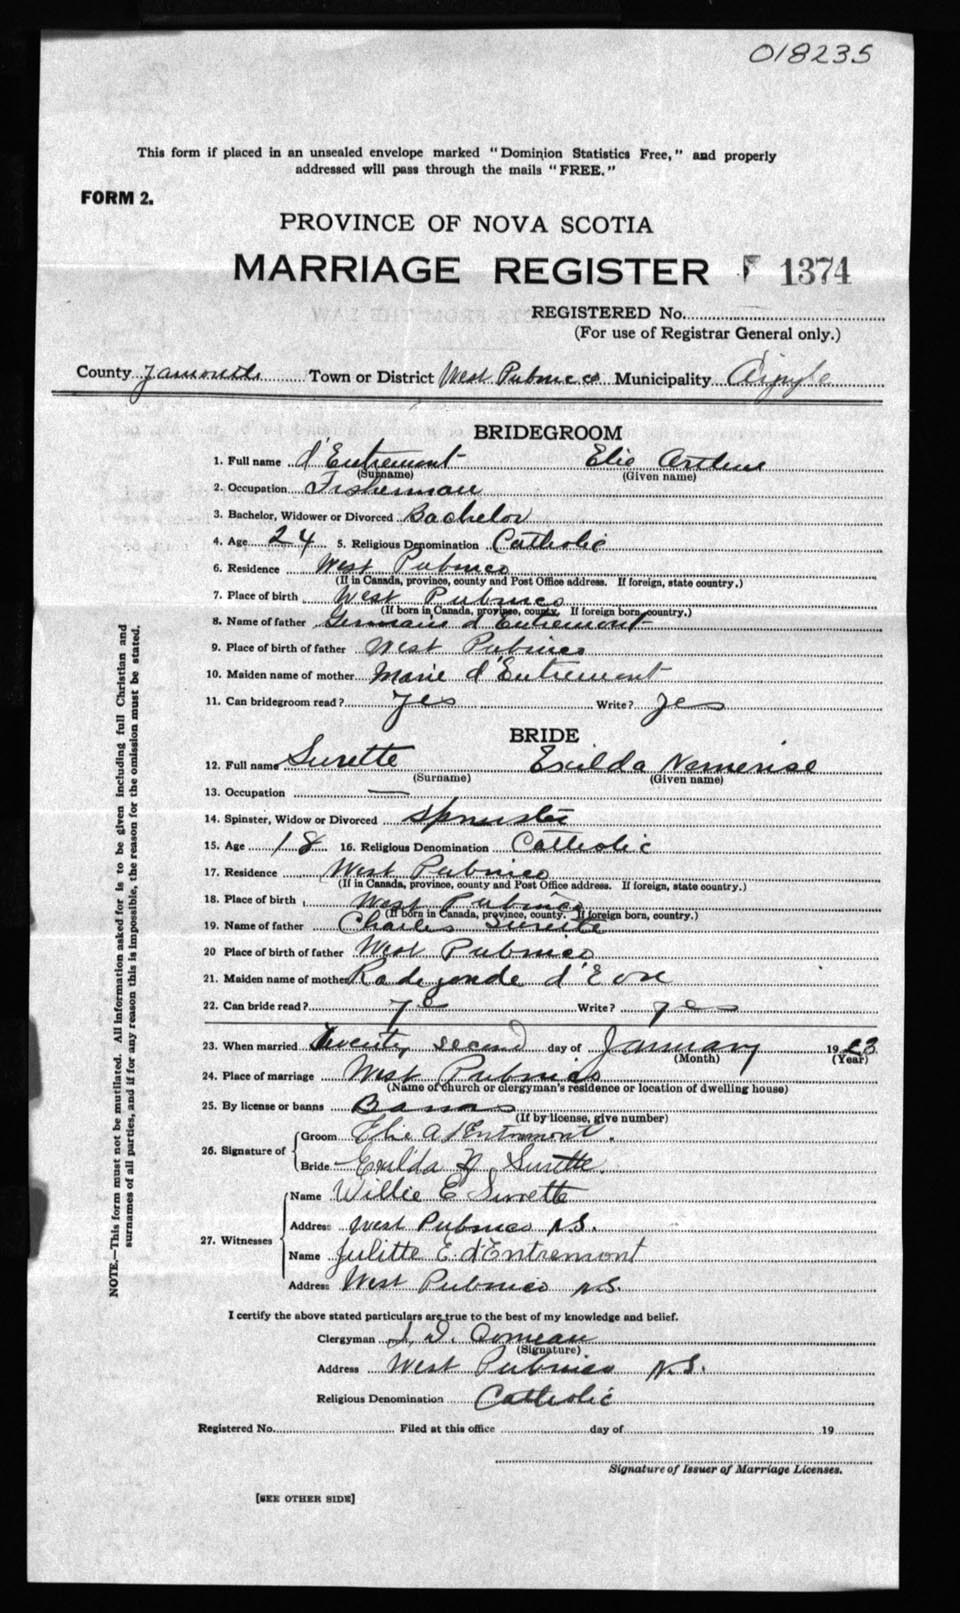 018235
This form if placed in an unsealed envelope marked "Dominion Statistics Free," and properly
addressed will pass through the mails "FREE."
FORM 2.
PROVINCE OF NOVA SCOTIA
MARRIAGE REGISTER 1374
REGISTERED No.
(For use of Registrar General only.)
County Yarmouth Town or District West Pubnico Municipality Argyle
BRIDEGROOM
1. Full name d'Entremont Elie Arthur
(Surname) (Given name)
2. Occupation Fisherman
3. Bachelor, Widower or Divorced Bachelor
4. Age 24 5. Religious Denomination Catholic
6. Residence West Pubnico
(If in Canada, province, county and Post Office address. If foreign, state country.)
7. Place of birth West Pubnico
(If born in Canada, province, county. If foreign born, country.)
8. Name of father Germain d'Entremont
9. Place of birth of father West Pubnico
10. Maiden name of mother Marie d'Entremont
11. Can bridegroom read? yes Write? yes
BRIDE
12. Full name Surette Exilda
(Surname) (Given name)
13. Occupation —
14. Spinster, Widow or Divorced Spinster
15. Age 18 16. Religious Denomination Catholic
17. Residence West Pubnico
(If in Canada, province, county and Post Office address. If foreign, state country.)
18. Place of birth West Pubnico
(If born in Canada, province, county. If foreign born, country.)
19. Name of father Charles Surette
20 Place of birth of father West Pubnico
21. Maiden name of mother Radegonde d'Eon
22. Can bride read? yes Write? yes
23. When married Twenty second day of January 1923
(Month) (Year)
24. Place of marriage West Pubnico
(Name of church or clergyman's residence or location of dwelling house)
25. By license or banns Banns
(If by license, give number)
26. Signature of Groom Elie A d'Entremont.
Bride Exilda N. Surette.
27. Witnesses Name Willie E Surette
Address West Pubnico N.S.
Name Julitte E. d'Entremont
Address West Pubnico N.S.
I certify the above stated particulars are true to the best of my knowledge and belief.
Clergyman Comeau
(Signature)
Address West Pubnico N.S.
Religious Denomination Catholic
Registered No. Filed at this office day of 19
Signature of Issuer of Marriage Licenses.
[SEE OTHER SIDE]
NOTE.—This form must not be mutilated. All information asked for is to be given including full Christian and
surnames of all parties, and if for any reason this is impossible, the reason for the omission must be stated.